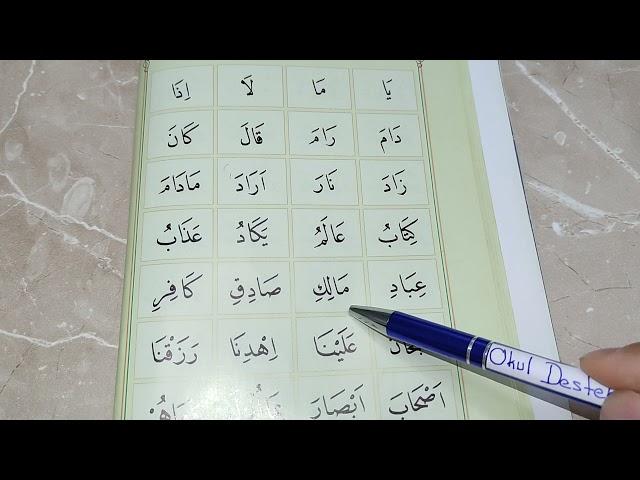 يَا مَا لَا اِذَا
دَامَ رَامَ قَالَ كَانَ
زَادَ نَارَ اَرَادَ مَادَامَ
كِتَابُ عَالَمُ يَكَادُ عَذَابُ
عِبَادِ مَالِكِ صَادِقِ كَافِرِ
عَلَيْنَا اِهْدِنَا رَزَقْنَا
اَصْحَابَ اَبْصَارَ
Okul Destek